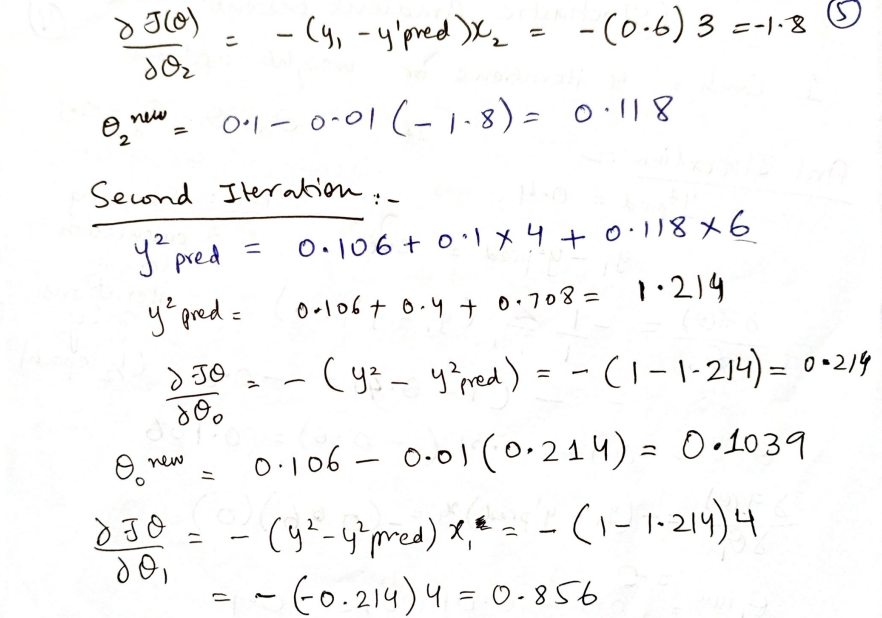 ∂J(θ)/∂θ₂ = - (y₁ - y'pred)x₂ = - (0.6) 3 = -1.8 (5)
θ₂ new = 0.1 - 0.01 (-1.8) = 0.118
Second Iteration :-
y² pred = 0.106 + 0.1 × 4 + 0.118 × 6
y² pred = 0.106 + 0.4 + 0.708 = 1.214
∂Jθ/∂θ₀ = - (y² - y²pred) = - (1 - 1.214) = 0.214
θ₀ new = 0.106 - 0.01 (0.214) = 0.1039
∂Jθ/∂θ₁ = - (y² - y²pred) x₁ = - (1 - 1.214) 4
= - (-0.214) 4 = 0.856